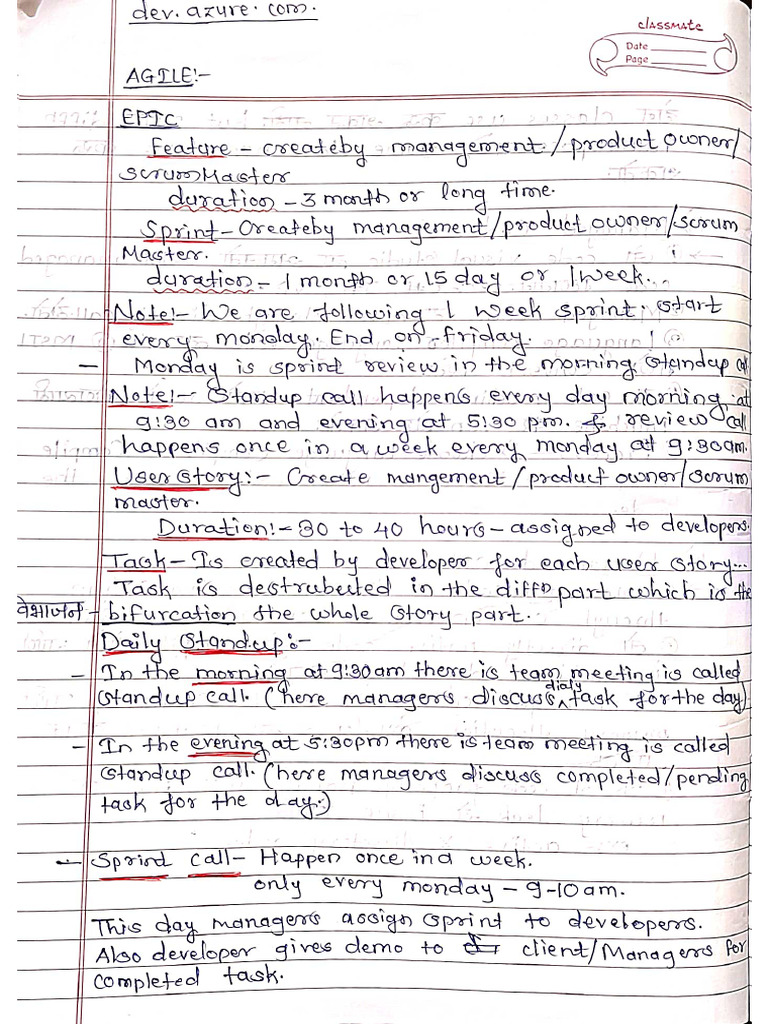 dev.azure.com.
classmate
Date
Page
AGILE:-
EPIC
Feature - createby management/product owner/
scrumMaster
duration - 3 month or long time.
Sprint - Createby management/product owner/scrum
Master.
duration - 1 month or 15 day or 1 week...
Note:- We are following 1 week sprint. start
every monday. End on friday.
- Monday is sprint review in the morning standup at
Note:- Standup call happens every day morning at
9:30 am and evening at 5:30 pm. & review call
happens once in a week every monday at 9:30am.
User story:- Create mangement/product owner/scrum
master.
Duration:- 30 to 40 hours - assigned to developers.
Task - Is created by developer for each user story...
Task is destrubuted in the diffn part which is the
वेभाजन - bifurcation the whole story part.
Daily Standup:-
- In the morning at 9:30am there is team meeting is called
standup call. (here managers discuss dialy task for the day)
- In the evening at 5:30pm there is team meeting is called
standup call. (here managers discuss completed/pending
task for the day.)
- Sprint call - Happen once in a week.
only every monday - 9-10am.
This day managers assign sprint to developers.
Also developer gives demo to client/Managers for
completed task.